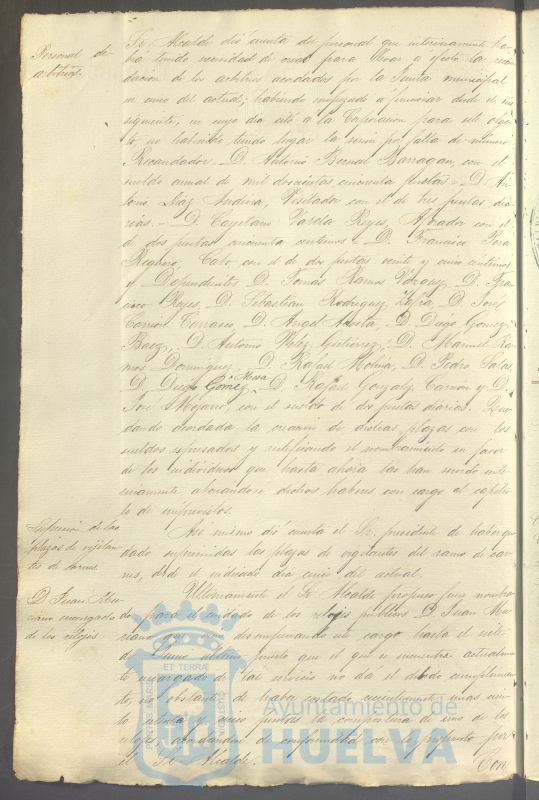 Personal de
arbitrios.
Sr. Alcalde dió cuenta del personal que interinamente ha-
bia tenido necesidad de crear para llevar a efecto la recau-
dacion de los arbitrios acordados por la Junta municipal
en cinco del actual; habiendo empezado á funcionar desde el dia
siguiente, en cuyo dia citó a la Corporacion para este obje-
to, no habiendo tenido lugar la sesion por falta de número
Recaudador D. Antonio Bernal Barragan, con el
sueldo anual de mil doscientas cincuenta pesetas = D. An-
tonio Diaz Andivia, Visitador con el de tres pesetas dia-
rias. = D. Cayetano Varela Reyes, Aforador con el
de dos pesetas cincuenta centimos = D. Francisco Pera
Reguero, Cabo con el de dos pesetas veinte y cinco centimos
y Dependientes D. Tomas Ramos Vazquez, D. Fran-
cisco Reyes, D. Sebastian Rodriguez, D. José
Carrion D. Angel Acosta, D. Diego Gomez
Baez, D. Antonio Velez Gutierrez, D. Manuel Ra-
mos Dominguez, D. Rafael Molina, D. Pedro Salas,
D. Diego Gomez D. Rafael Gonzalez Carrion y D.
José Mojarro, con el sueldo de dos pesetas diarias. Que-
dando acordada la creacion de dichas plazas con los
sueldos espresados y ratificando el nombramiento en favor
de los individuos que hasta ahora las han servido inte-
rinamente abonandose dichos haberes con cargo al capitu-
lo de imprevistos.
Supresion de las
plazas de vigilan-
tes de carnes.
Asi mismo dió cuenta el Sr. presidente de haber que-
dado suprimidas las plazas de vigilantes del ramo de car-
nes, desde el indicado dia cinco del actual.
D. Juan Ma-
riano encargado
de los relojes
Ultimamente el Sr. Alcalde propuso fuese nombra-
do para el cuidado de los relojes publicos D. Juan Ma-
riano que vino desempeñando este cargo hasta el siete
de Junio ultimo puesto que el que se encuentra actualmen-
te encargado de tal servicio no da el debido cumplimien-
to, no obstante de haber costado unas cien-
to y cinco pesetas la compostura de uno de los
relojes acordandose de conformidad con lo propuesto por
el Sr. Alcalde.
Con
ET TERRA
Ayuntamiento de
HUELVA